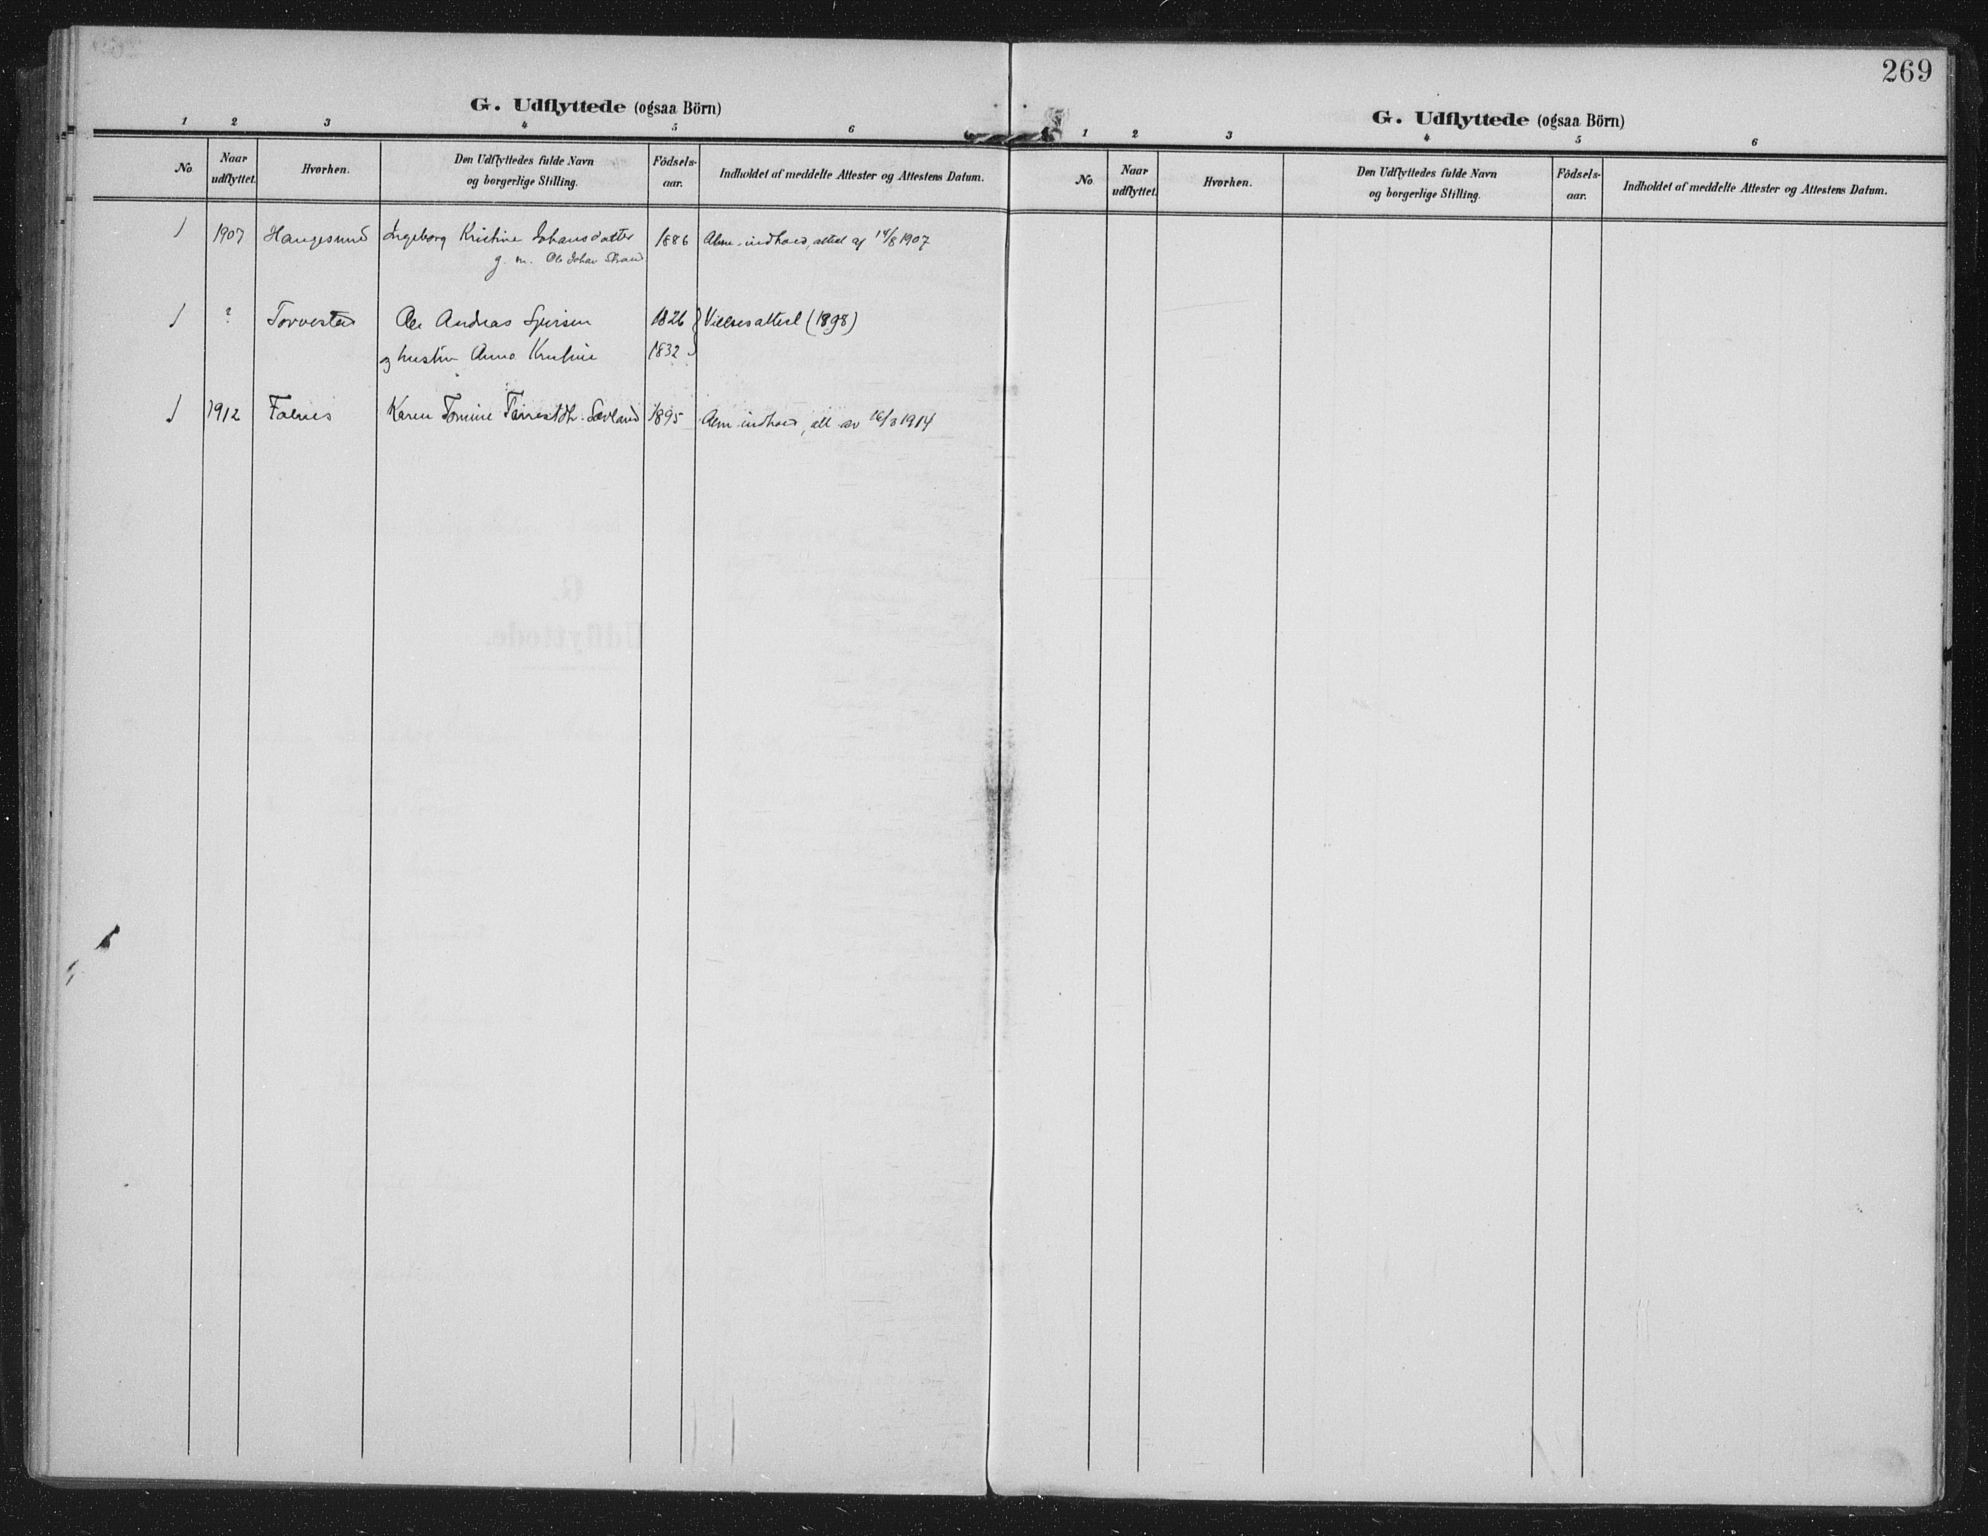 G. Udflyttede (ogsaa Börn)
1 2 3 4 5 6
No. Naar udflyttet. Hvorhen. Den Udflyttedes fulde Navn og borgerlige Stilling. Födsels-aar. Indholdet af meddelte Attester og Attestens Datum.
1 1907 Haugesund Ingeborg Kristine Johansdatter 1886 Alm. indhold, attest af 14/8 1907
g. m. Ole Johan Strand
1 ? Torvestad Ole Andreas 1826 Vielsesattest (1898)
og hustru Anna Kristine 1832
1 1912 Falnes Karen Tomine Sævland 1895 Alm. indhold, att. av 16/3 1914
269
G. Udflyttede (ogsaa Börn)
1 2 3 4 5 6
No. Naar udflyttet. Hvorhen. Den Udflyttedes fulde Navn og borgerlige Stilling. Födsels-aar. Indholdet af meddelte Attester og Attestens Datum.